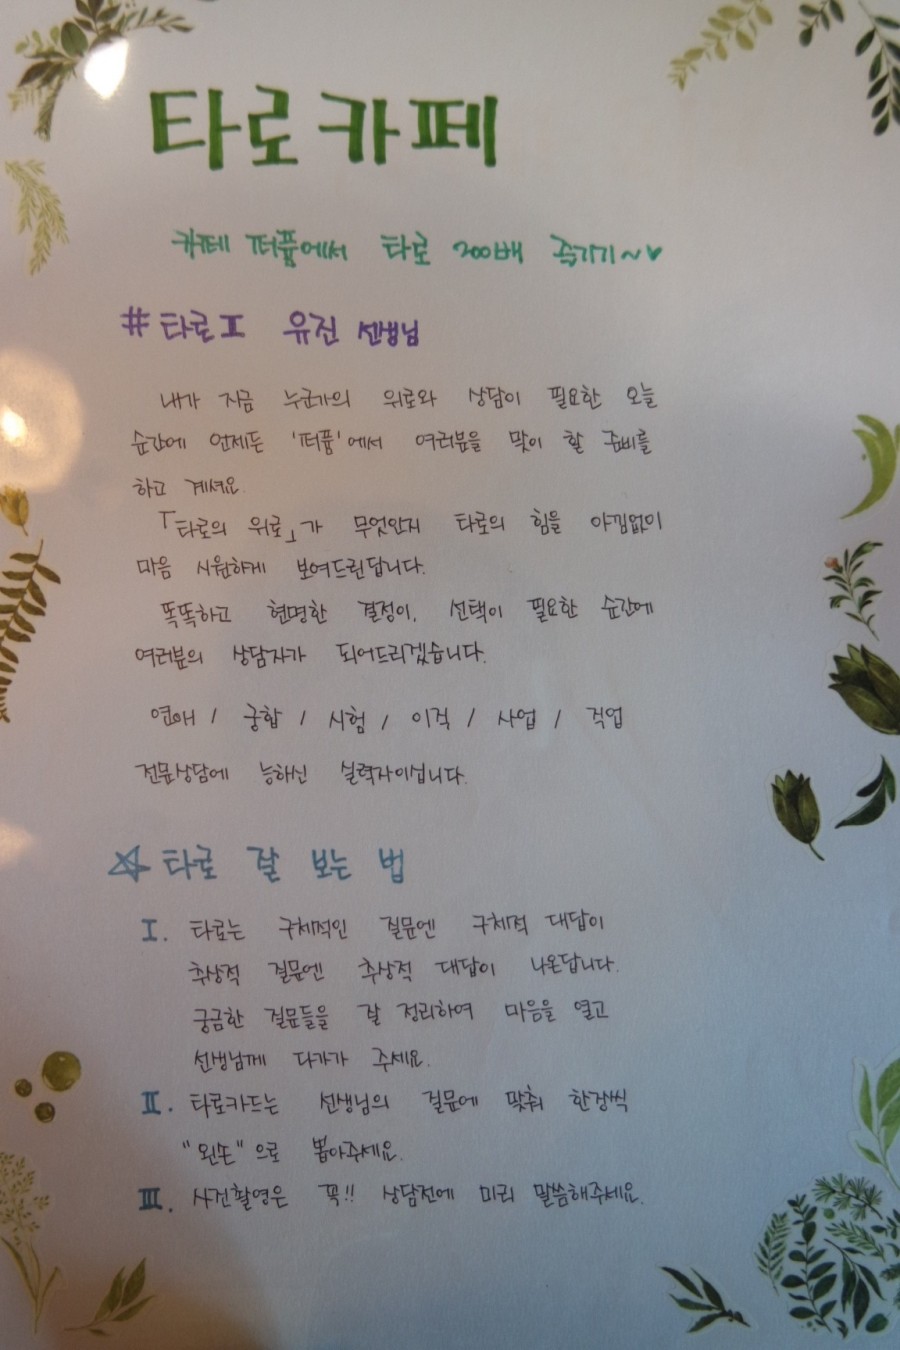 타로카페
카페 떠픔에서 타로 200배 즐기기~♥
# 타로 I 유진 선생님
내가 지금 누군가의 위로와 상담이 필요한 오늘
순간에 언제든 '떠픔'에서 여러분을 맞이 할 준비를
하고 계셔요.
「타로의 위로」가 무엇인지 타로의 힘을 아낌없이
마음 시원하게 보여드린답니다.
똑똑하고 현명한 결정이, 선택이 필요한 순간에
여러분의 상담자가 되어드리겠습니다.
연애 / 궁합 / 시험 / 이직 / 사업 / 직업
전문상담에 능하신 실력자이십니다.
☆ 타로 잘 보는 법
I. 타로는 구체적인 질문엔 구체적 대답이
추상적 질문엔 추상적 대답이 나온답니다.
궁금한 질문들을 잘 정리하여 마음을 열고
선생님께 다가가 주세요.
II. 타로카드는 선생님의 질문에 맞춰 한장씩
"왼손"으로 뽑아주세요.
III. 사진촬영은 꼭!! 상담전에 미리 말씀해주세요.